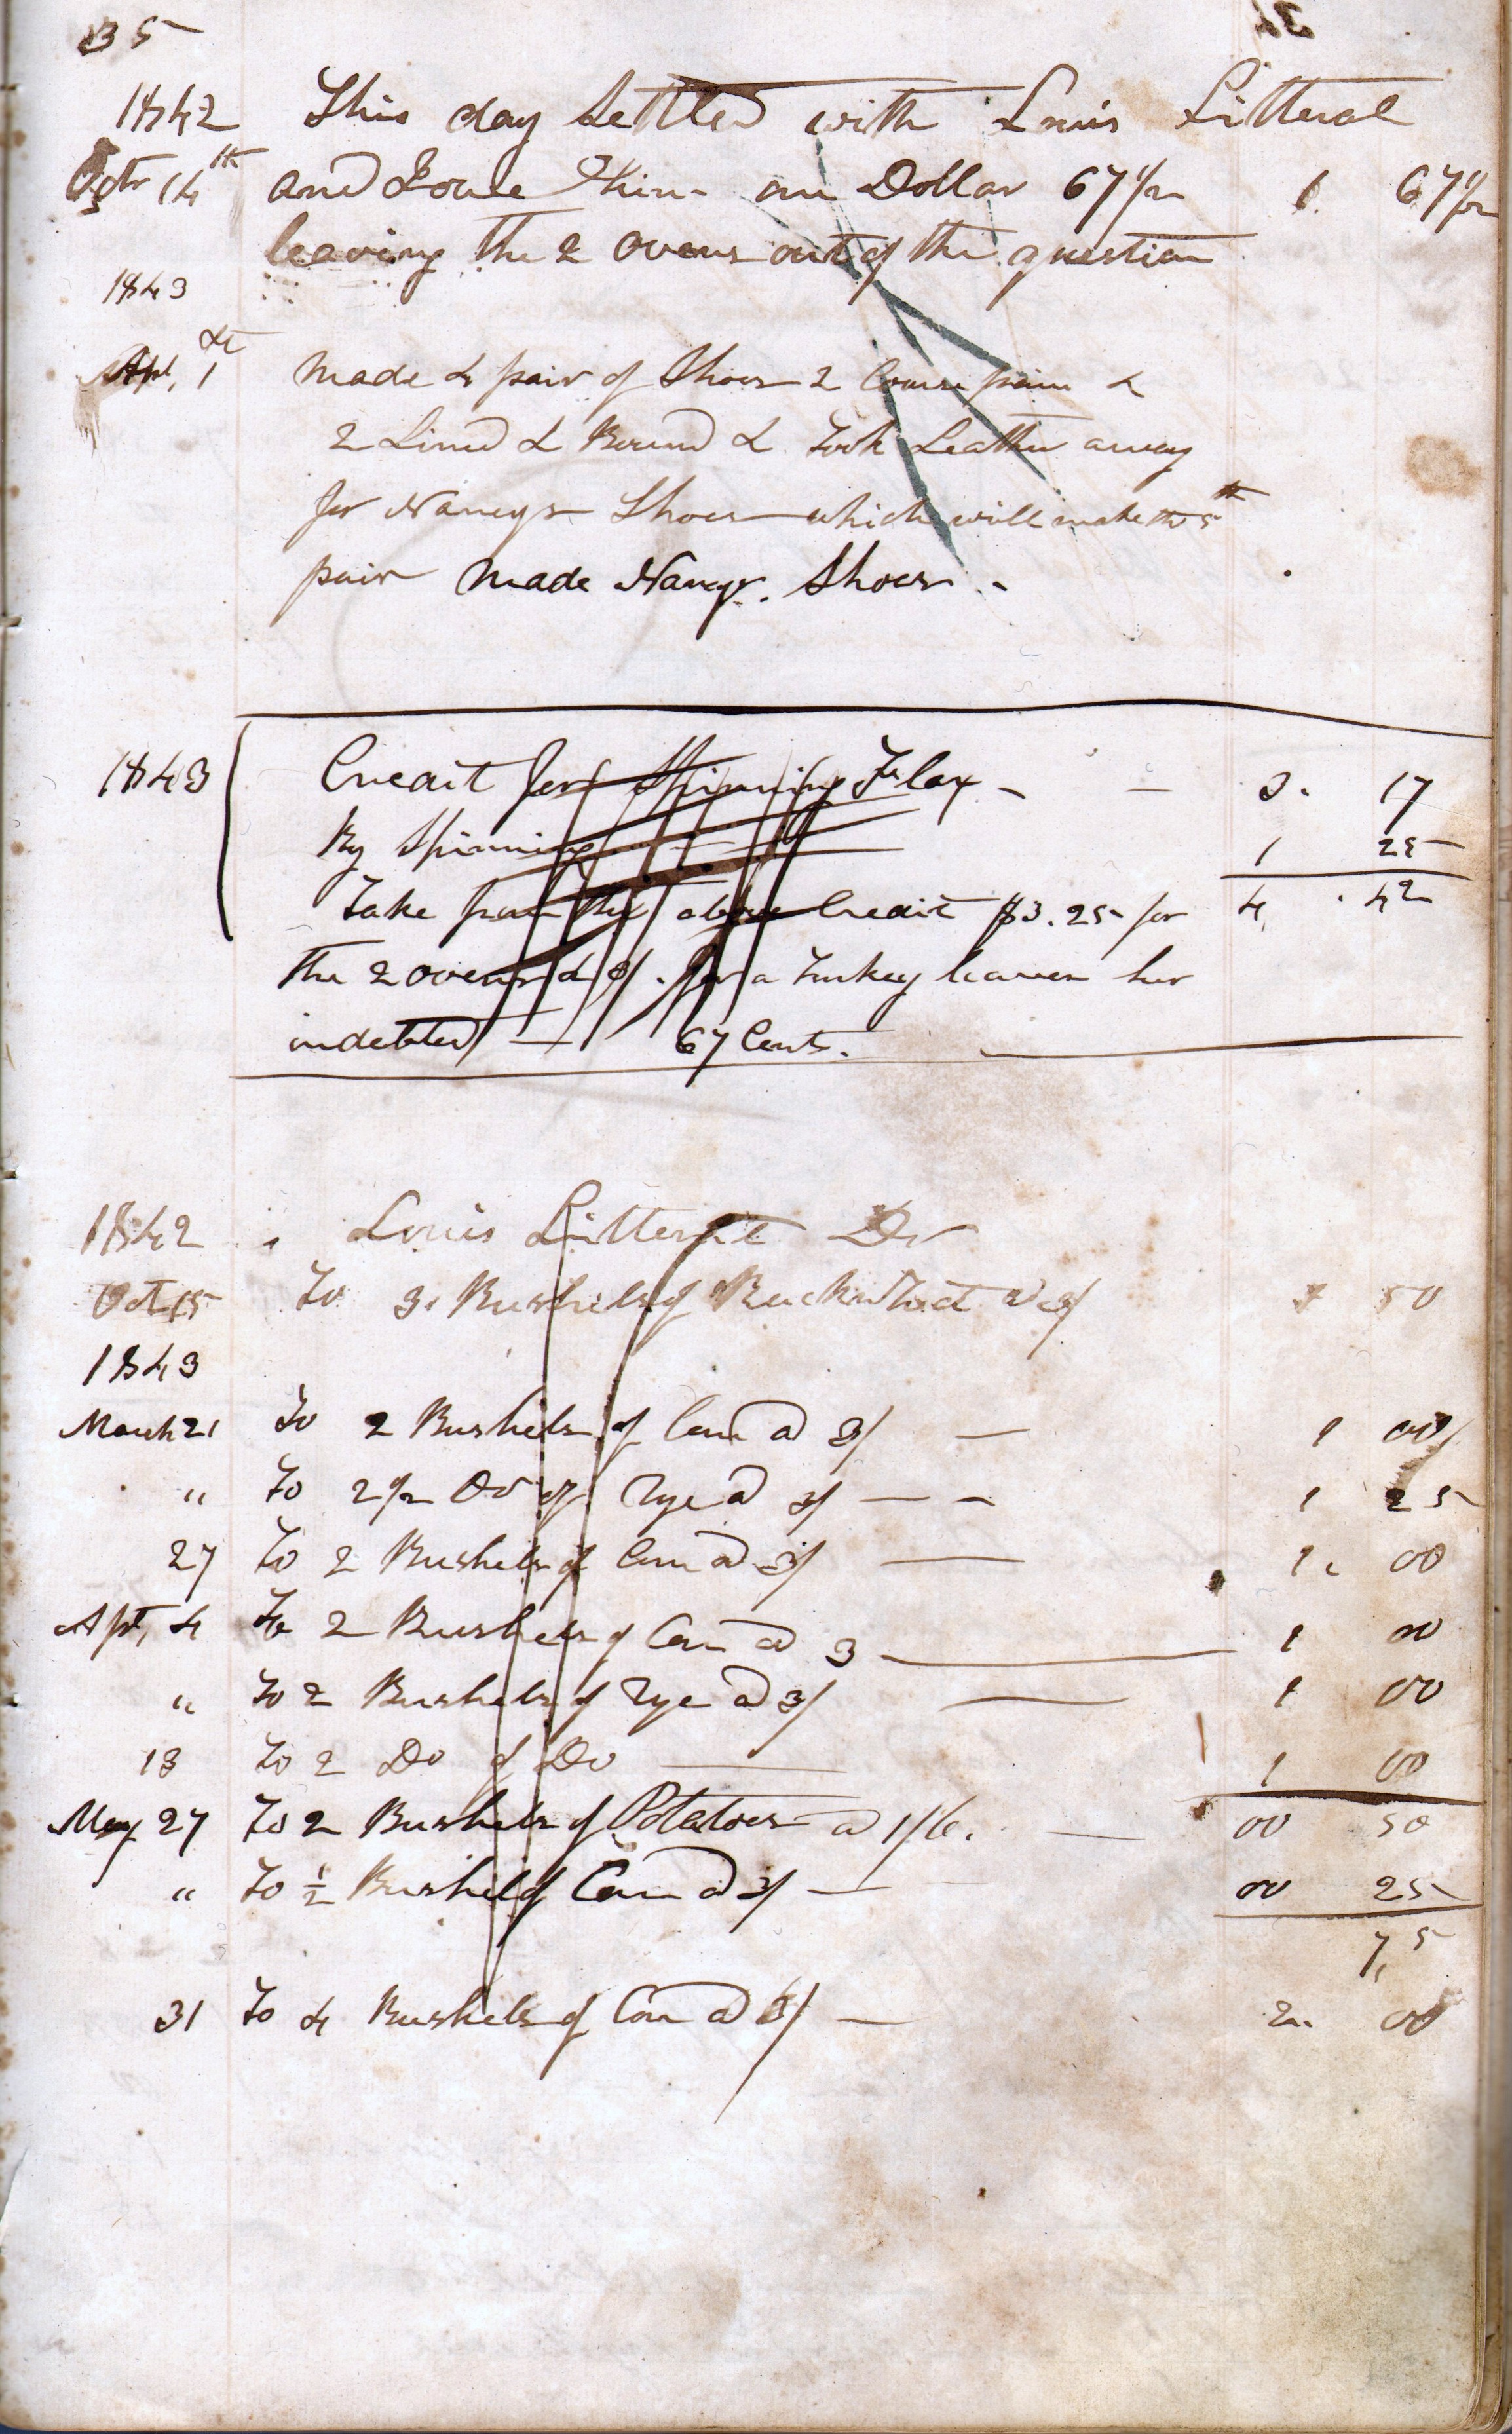 35
1842 This day Settled with Louis Litteral
Octr 14th and I owe Him one Dollar 67 1/2 1. 67 1/2
leaving the 2 ovens out of the question
1843
Apl, 1st Made 4 pair of Shoes 2 Course pair &
2 Lined & Bound & Took Leather away
for Nancys Shoes which will make the 5th
pair Made Nancys. Shoes -
1843 Credit for Spinning Flax - - 3. 17
By Spinning 1 25
Take from the above Credit $3.25 for 4. 42
the 2 ovens & for a Turkey leaves her
indebted — 67 Cents.
1842 Louis Litteral Dr
Oct 15 To 3 Bushels of Buckwheat a 3/ 1 50
1843
March 21 To 2 Bushels of Corn a 3/ — 1 00
" To 2 1/2 Do of Rye a 3/ — - 1 25
27 To 2 Bushels of Corn a 3/ — 1. 00
Apl, 4 To 2 Bushels of Corn a 3 — 1 00
" To 2 Bushels of Rye a 3/ — 1 00
13 To 2 Do of Do — 1 00
May 27 To 2 Bushels of Potatoes a 1/6. — 00 50
" To 1/2 Bushel of Corn a 3/ — 00 25
7,5
31 To 4 Bushels of Corn a 3/ — 2.. 00